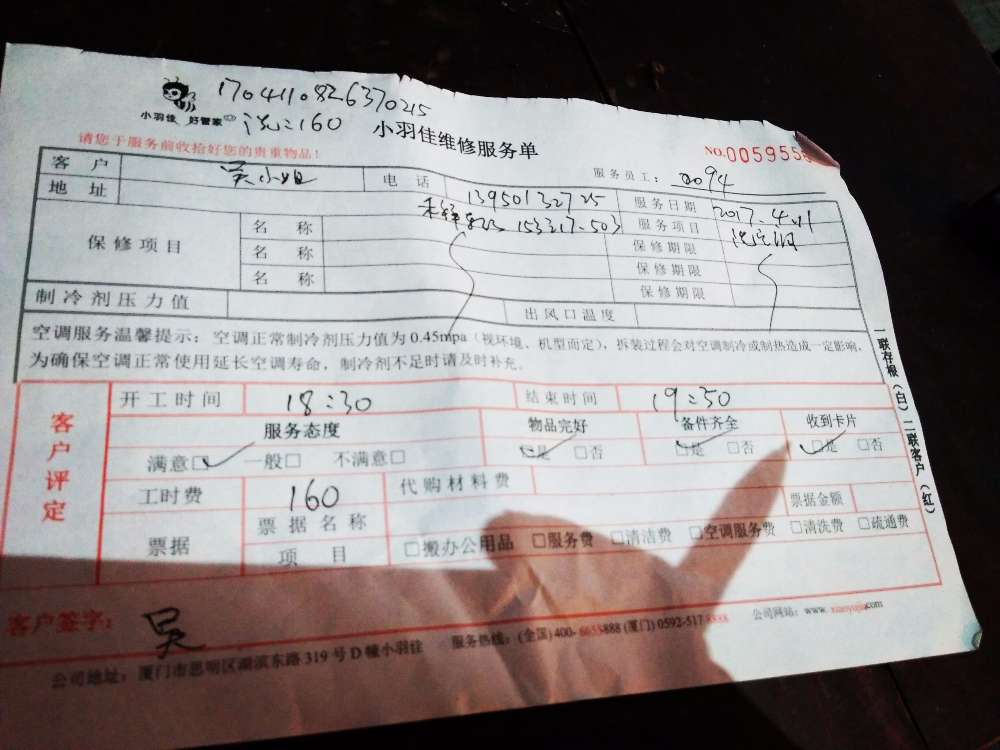 170411082637025
小羽佳 好管家 洗:160
小羽佳维修服务单
请您于服务前收拾好您的贵重物品!
NO.005955
服务员工: 0094
客户 吴小姐 电话 13950132725 服务日期 2017.4.11
地址 153317.503 服务项目
保修项目 名称 保修期限
名称 保修期限
名称 保修期限
制冷剂压力值 出风口温度
空调服务温馨提示:空调正常制冷剂压力值为0.45mpa(视环境、机型而定),拆装过程会对空调制冷或制热造成一定影响,
为确保空调正常使用延长空调寿命,制冷剂不足时请及时补充。
一联存根(白)二联客户(红)
客户评定
开工时间 18:30 结束时间 19:50
服务态度 物品完好 备件齐全 收到卡片
满意□✓ 一般□ 不满意□ □是 □否 □是 □否 □是 □否
工时费 160 代购材料费
票据 票据名称 票据金额
项目 □搬办公用品 □服务费 □清洁费 □空调服务费 □清洗费 □疏通费
客户签字: 吴
公司地址:厦门市思明区湖滨东路319号D幢小羽佳 服务热线:(全国)400-6655888(厦门)0592-5178888 公司网站:www.xiaoyujia.com